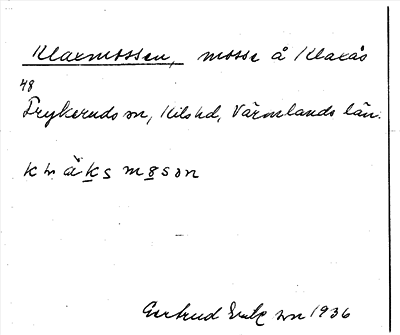 Klaxmossen, mosse å Klaxås
48
Frykeruds sn, Kils hd, Värmlands län.
Gertrud sn 1936